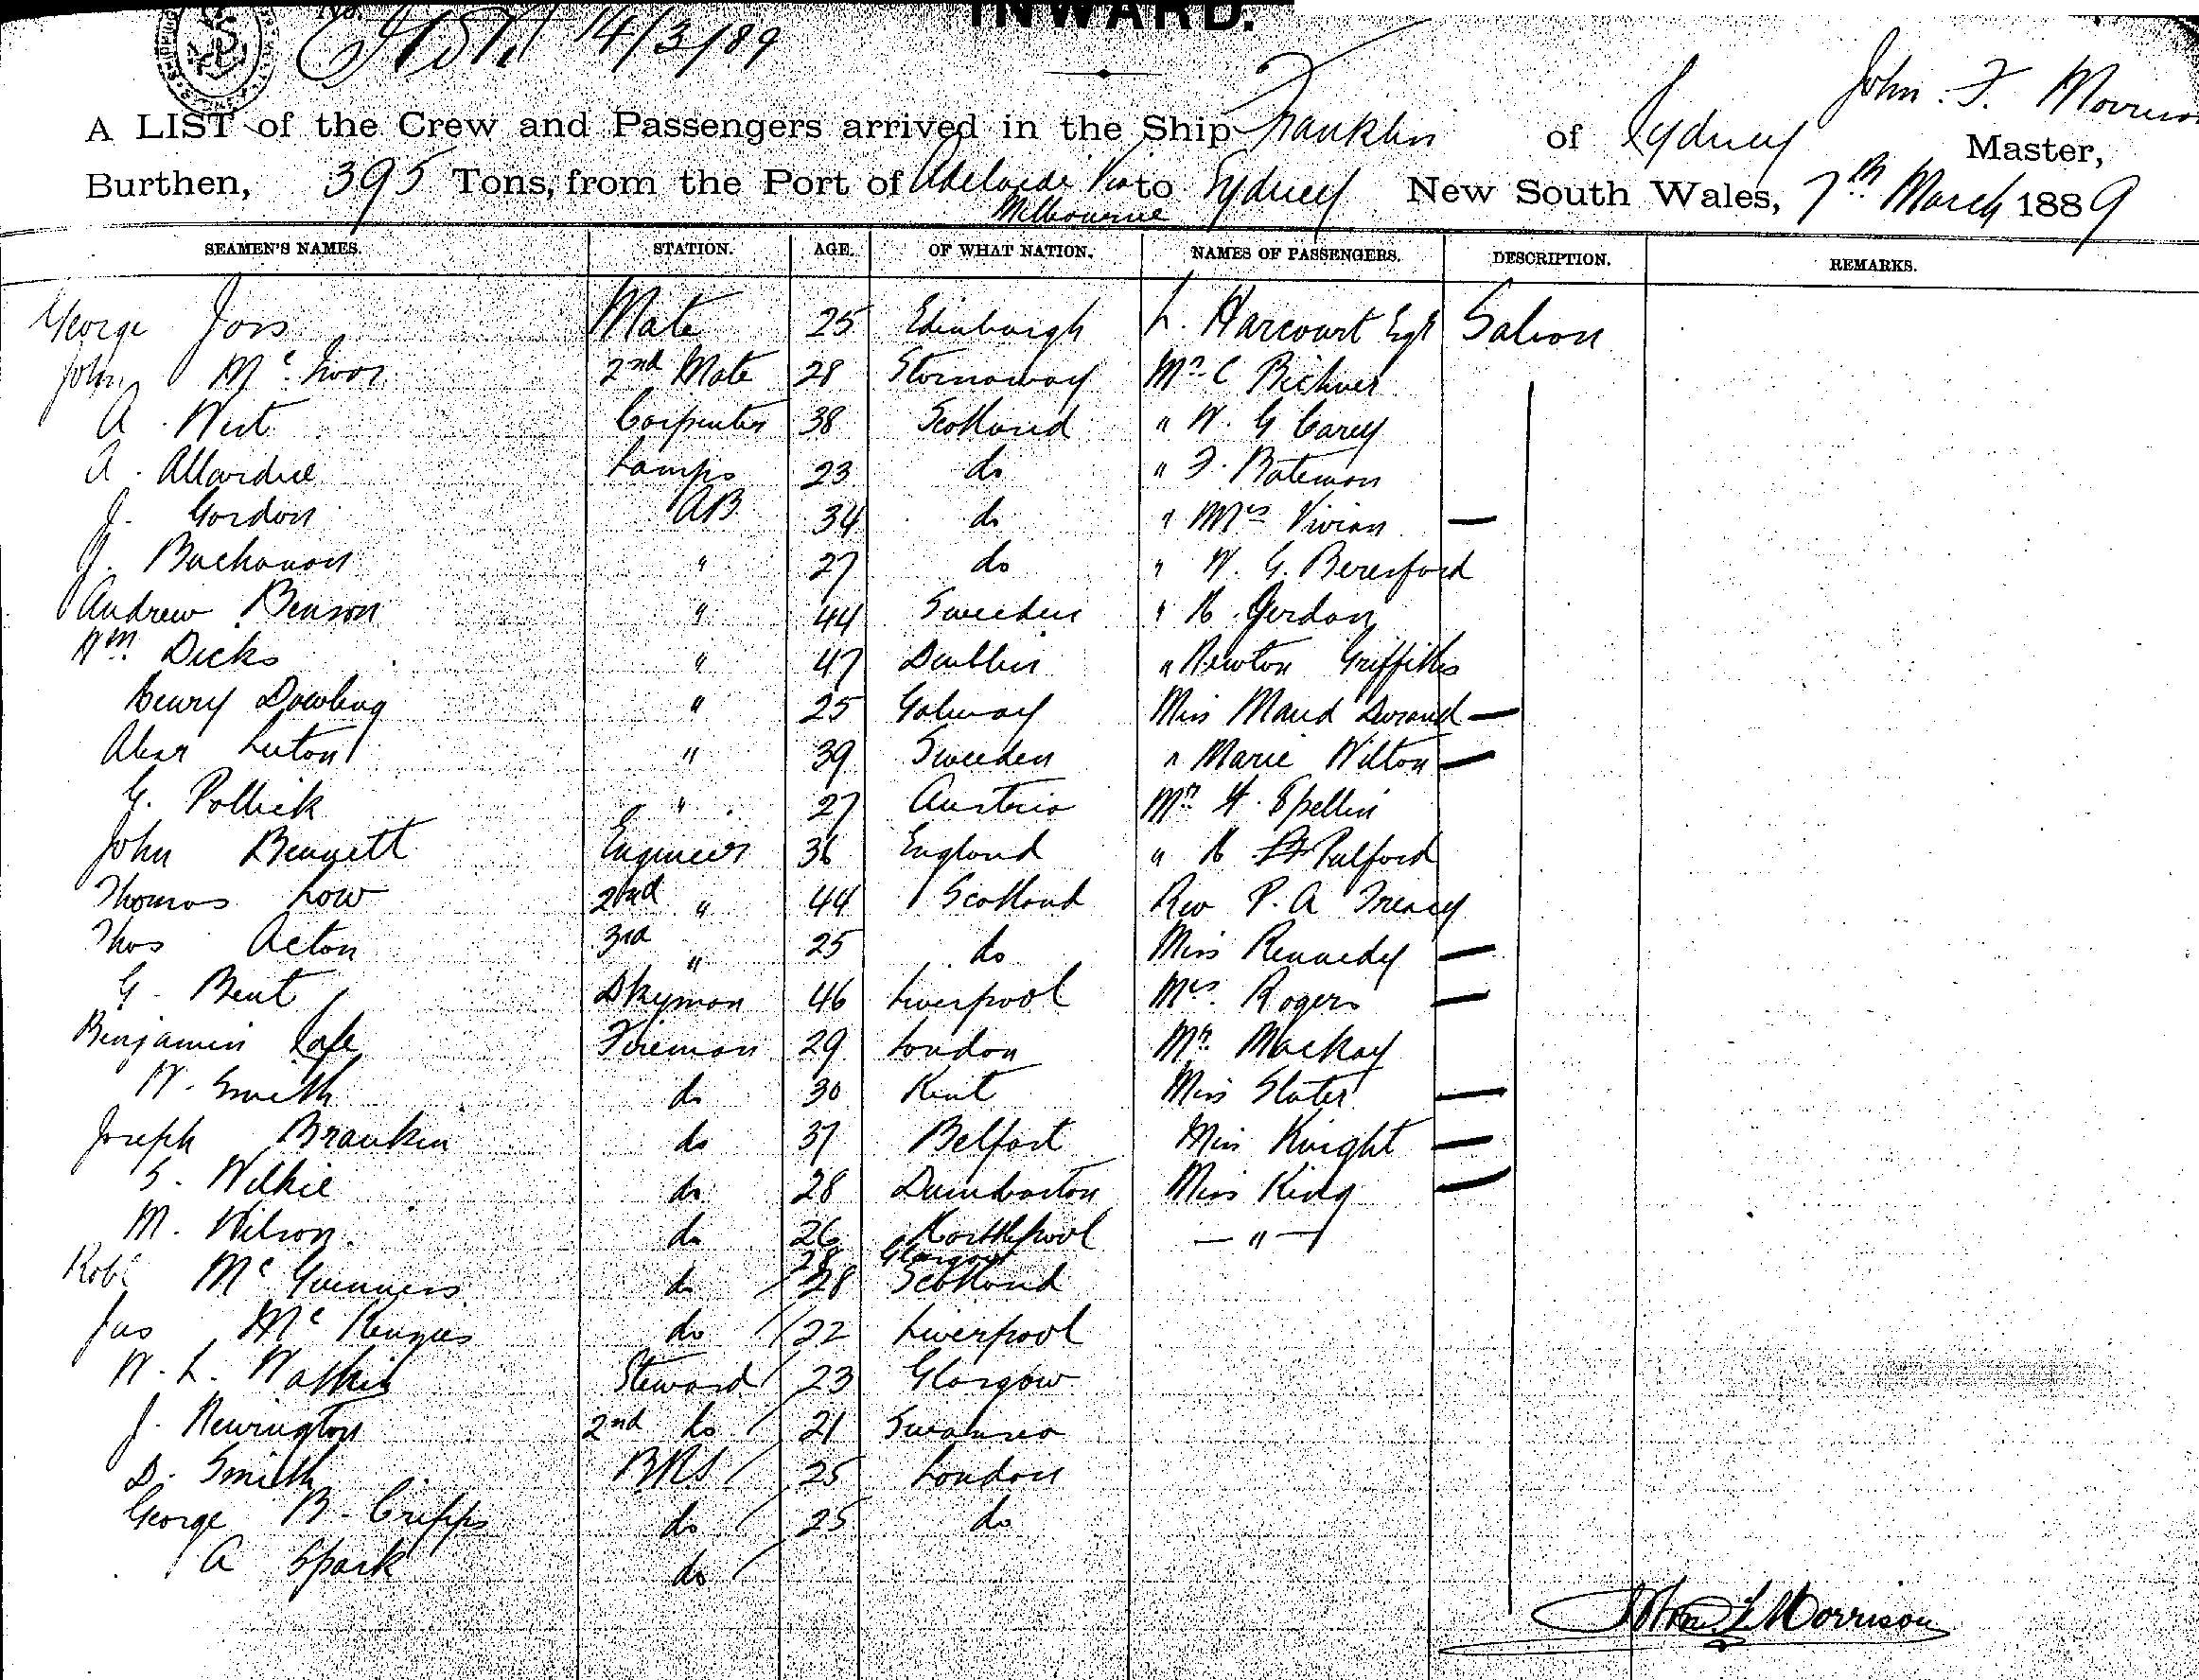 No.
INWARD.
14/3/89
John. F. Morrison
A LIST of the Crew and Passengers arrived in the Ship Franklin of Sydney Master,
Burthen, 395 Tons, from the Port of Adelaide Via Melbourne to Sydney New South Wales, 7th March 1889
SEAMEN'S NAMES. STATION. AGE. OF WHAT NATION. NAMES OF PASSENGERS. DESCRIPTION. REMARKS.
George Joss Mate 25 Edinburgh L. Harcourt Esqr Saloon
John Mc Ivor 2nd Mate 28 Stornoway Mr C Richner
A. West Carpenter 38 Scotland " W. G Carey
A. Allardice Lamps 23 do " F. Bateman
J. Gordon AB 34 do " Mrs Vivian —
J. Buchanan " 27 do " W. G. Beresford
Andrew Benson " 44 Sweeden " H. Jerdan
Wm Dicks " 47 Dublin " Newton Griffiths
Henry Dowling " 25 Galway Miss Maud Durand —
Alexr Luton " 39 Sweeden " Marie Wilton —
G. Pollick " 27 Austria Mr H. Spellin
John Bennett Engineer 36 England " H Pulford
Thomas Low 2nd " 44 Scotland Rev P. A Treacy
Thos Acton 3rd " 25 do Miss Kennedy —
G. Bent Dkyman 46 Liverpool Mrs. Rogers —
Benjamin Cafe Fireman 29 London Mr. Mackay
W. Smith do 30 Kent Miss Slater —
Joseph Brankin do 37 Belfast Miss Knight —
S. Wilkie do 28 Dumbarton Miss King —
M. Wilson do 26 Hartlepool — " —
28 Glasgow
Robt Mc Guinness do 28 Scotland
Jas Mc do 22 Liverpool
W. L. Watkins Steward 23 Glasgow
J. Newington 2nd do 21 Swansea
D. Smith BRS 25 London
George B. Cripps do 25 do
A Spark do
John F Morrison